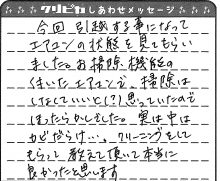 クリピカ しあわせメッセージ
今回 引越する事になって
エアコンの状態を見てもらい
ました。お掃除機能の
くまいたエアコンで、掃除は
しなくていいと(?)思っていたので
ほったらかしました。実は中は
カビだらけ…。クリーニングをして
もらって 教えて頂いて本当に
良かったと思します